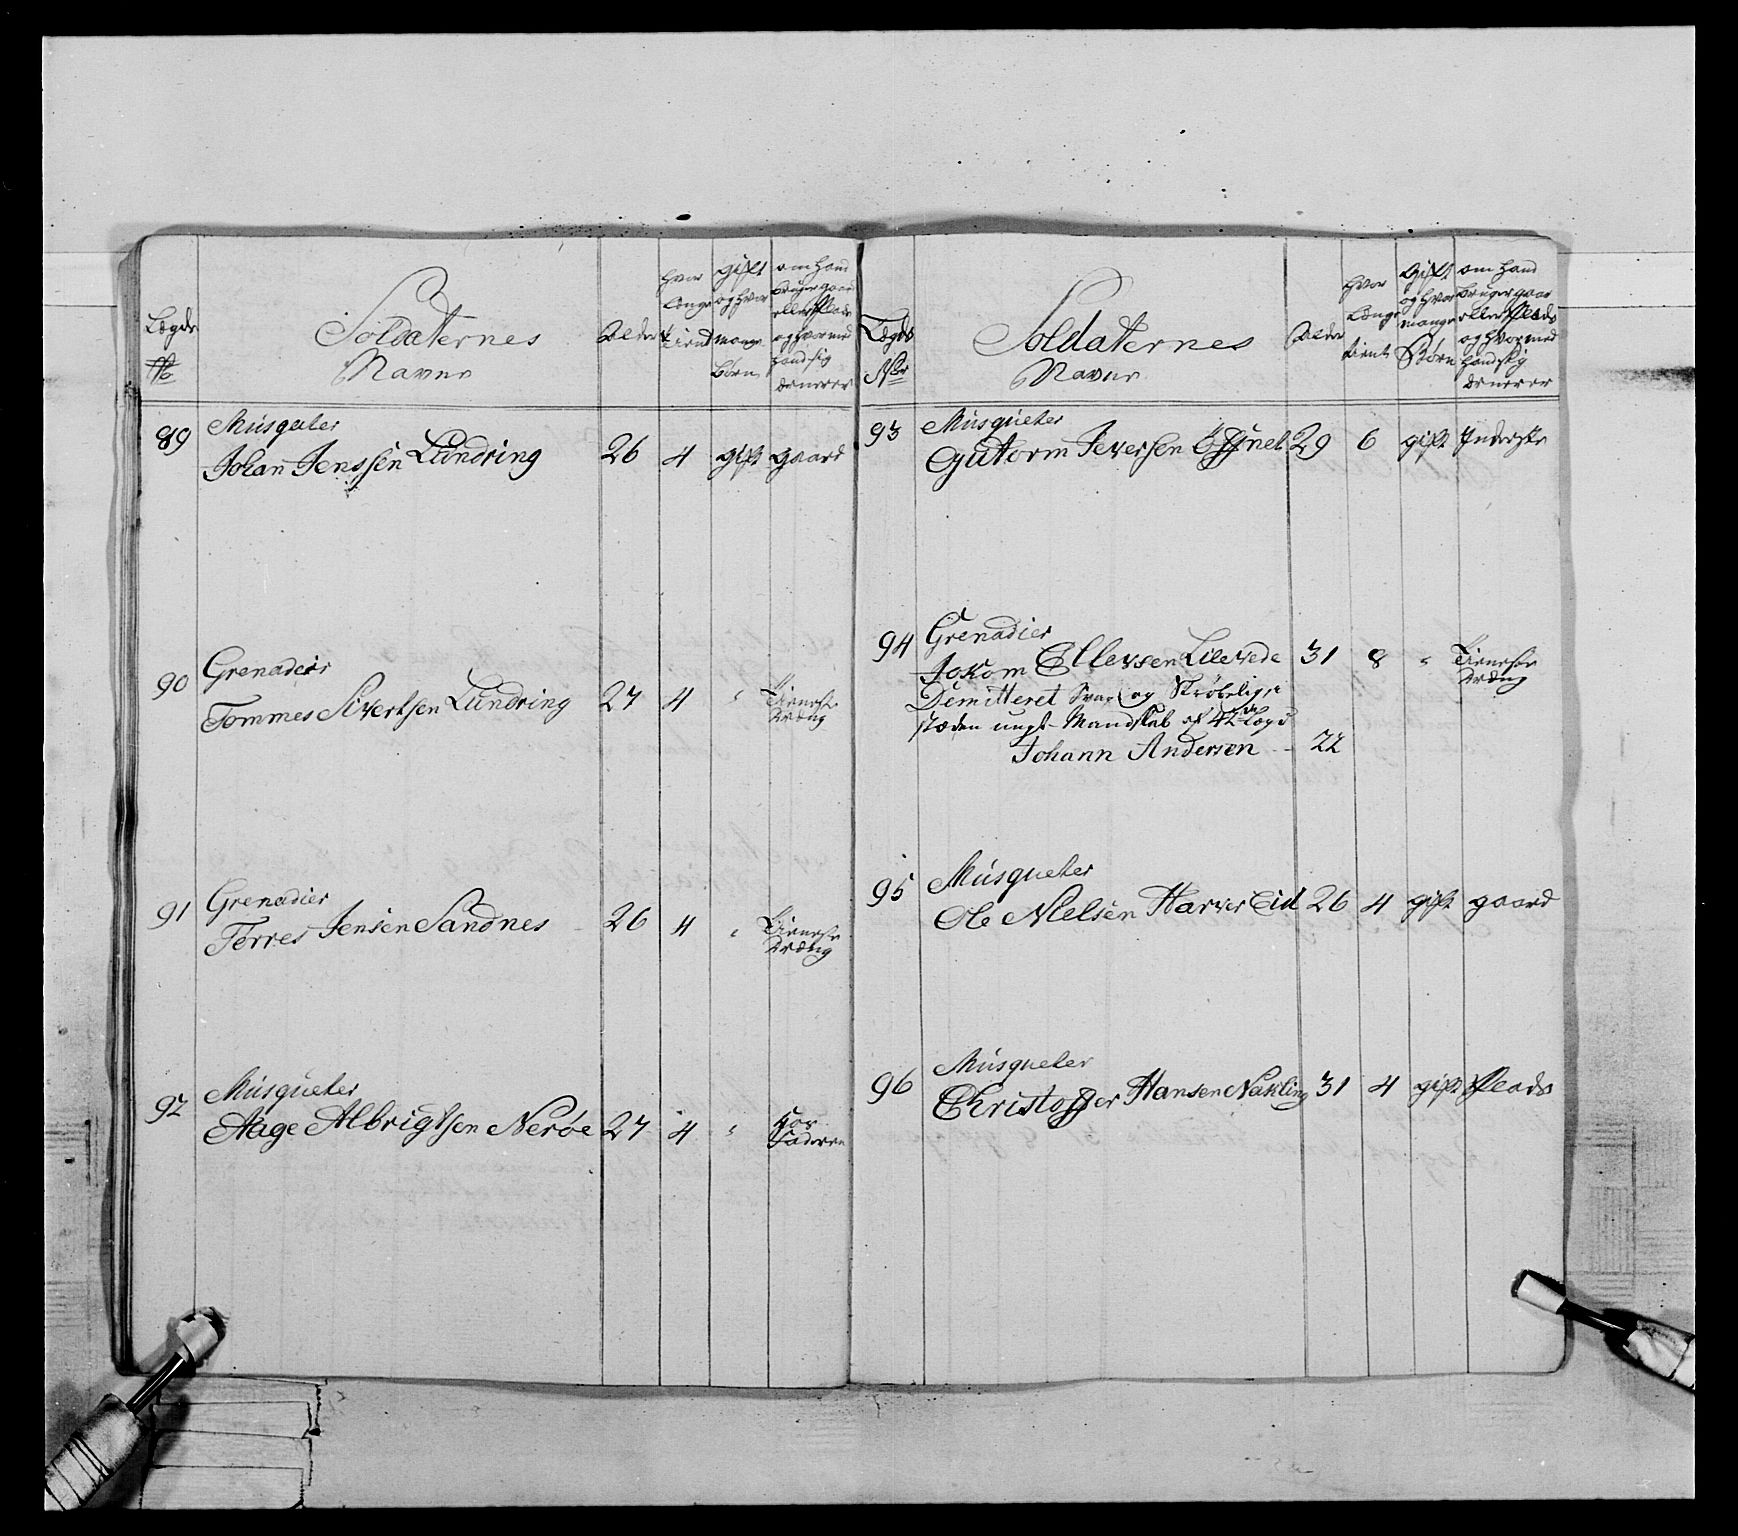 Lægds
No
Soldaternes
Navne
Alder
hvor
længe
tient
gift
og hvor
mange
børn
om hand
bruger gaard
eller Plads
og hvormed
hand sig
ernerer
89
Musqueter
Johan Jenssen Lundring
26
4
gift
gaard
90
Grenadeir
Tommes Sivertsen Lundring
27
4
"
Tieneste
dræng
91
Grenadier
Torres Jensen Sandnes
26
4
"
Tieneste
dræng
92
Musqueter
Aage Albrigtsen Nerøe
27
4
"
hos
Faderen
Lægds
Nor
Soldaternes
Navne
Alder
hvor
længe
tient
gift
og hvor
mange
Børn
om hand
bruger gaar
eller Plads
og hvormed
hand sig
ernerer
93
Musqueter
Gutorm Iversen
29
6
gift
Inderste
94
Grenadier
Jokom Ellevsen Lilevede
31
8
"
Tieneste
dræng
Demitteret Svag og Skrøbelig, i
stæden ungt Mandskab af 42de Lægd
Johann Andersen
22
95
Musqueter
Ole Nielsen Harver Eid
26
4
gift
gaard
96
Musqueter
Christoffer Hansen Nakling
31
4
gift
Plads